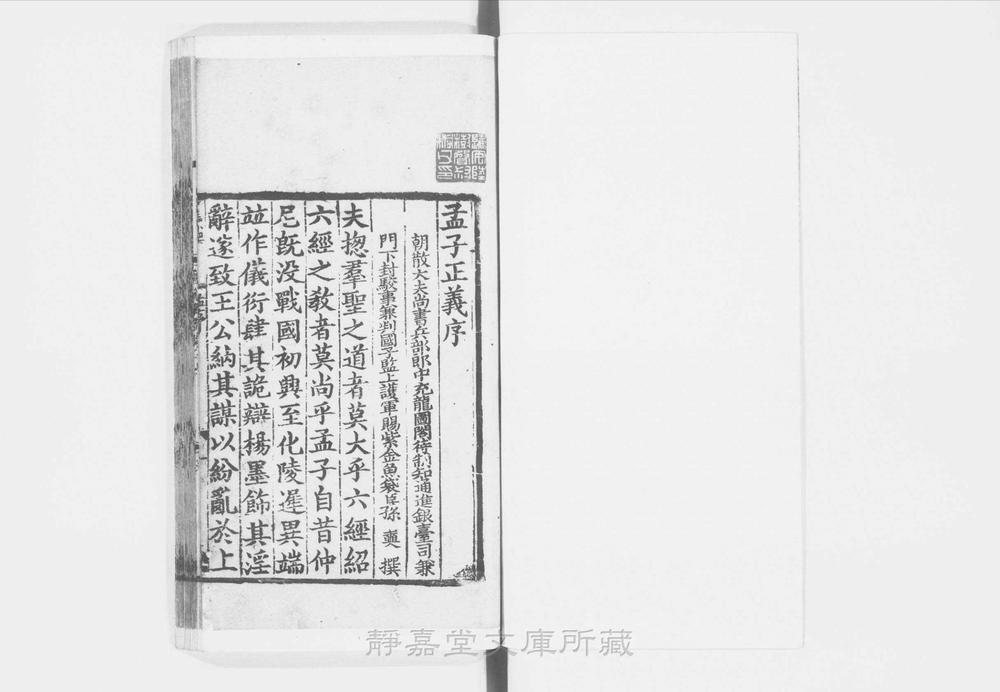 孟子正義序
朝散大夫尚書兵部郎中充龍圖閣待制知通進銀臺司兼
門下封駁事兼判國子監上護軍賜紫金魚袋臣孫　奭　撰
夫揔羣聖之道者莫大乎六經紹
六經之敎者莫尚乎孟子自昔仲
尼旣没戰國初興至化陵遟異端
並作儀衍肆其詭辯楊墨飾其淫
辭遂致王公納其謀以紛亂於上
靜嘉堂文庫所藏